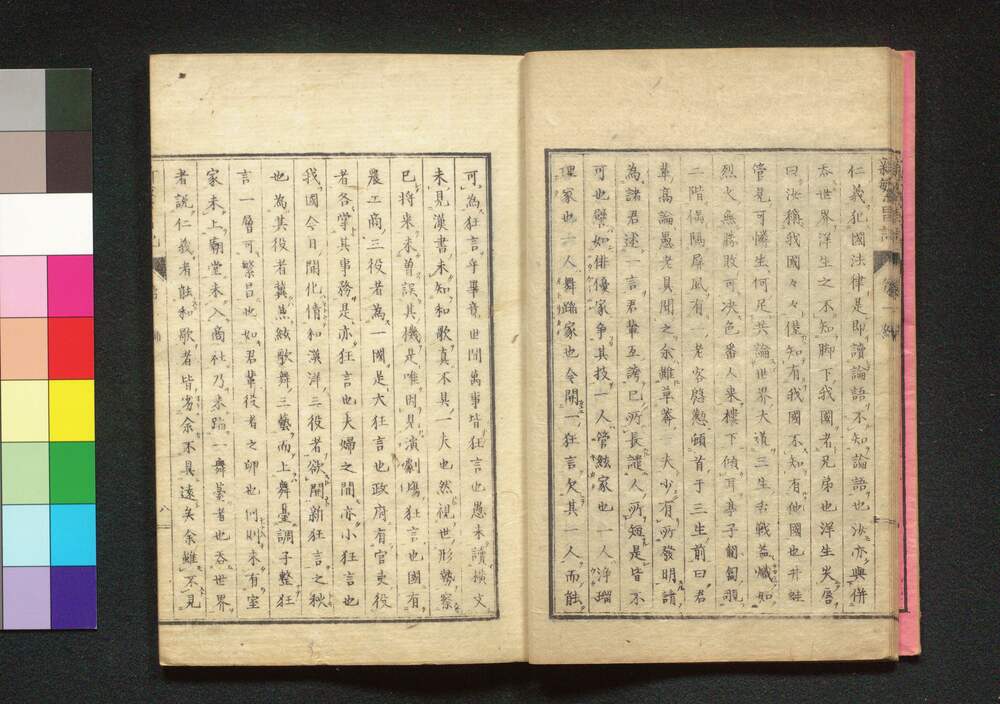 仁義犯國法律是即讀論語不知論語也汝亦與併
呑世界洋生之不知脚下我國者兄弟也洋生尖唇
曰汝穪我國々々僅知有我國不知有他國也井蛙
管見可憐生何足共論世界大道三生舌戰益熾如
烈火無勝敗可决色番人來樓下傾耳亭子匍匐
二階偶隔屏風有一老客慇懃頓首于三生前曰君
輩高論愚老具聞之余雖草莽一大少有所發明請
為諸君述一言君輩互誇己所長譴人所短是皆不
可也譬如俳優家爭其技一人管絃家也一人浄瑠
理家也一人舞踏家也令開一狂言欠其一人而能
可為狂言乎畢竟世間萬事皆狂言也愚未讀横文
未見漢書未知和歌真不具一丈也然視世形勢察
已將来未曾誤其機是唯因見演劇塲狂言也國有
農工商三役者為一國是大狂言也政府有官吏役
者各掌其事務是亦狂言也夫婦之間亦小狂言也
我國今日開化情和漢洋三役者欲開新狂言之秋
也為其役者冀無絃歌舞三藝而上舞臺調子整狂
言一層可繁昌也如君輩役者之卵也何則未有室
家未上廟堂未入商社乃未踏一舞臺者也呑世界
者說仁義者詠和歌者皆劣余不具遠矣余雖不見
八